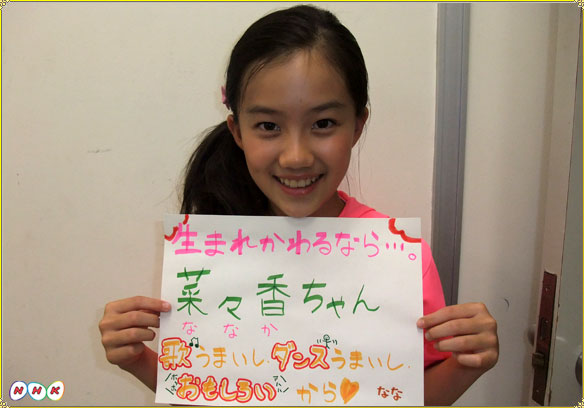 生まれかわるなら…。
菜々香ちゃん
ななか
歌うまいし.ダンスうまいし.
おもしろいから
なな
NHK